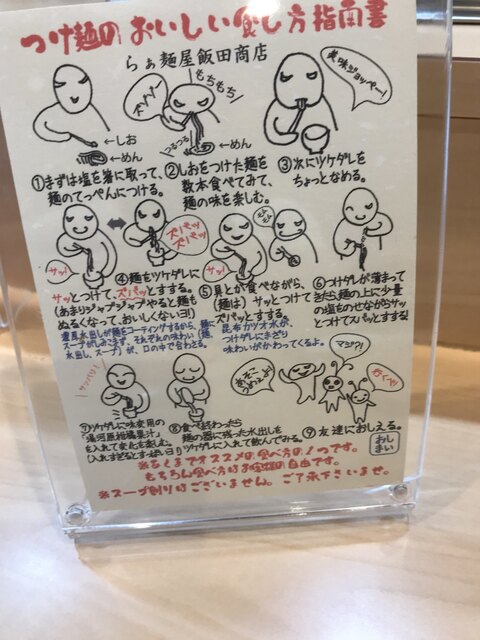 つけ麺のおいしい食し方指南書
らぁ麺屋飯田商店
ズゾゾー
もちもち
つるつる
美味ジョッペー!
←しお
←めん
←めん
①まずは塩を箸に取って、
麺のてっぺんにつける。
②しおをつけた麺を
数本食べてみて、
麺の味を楽しむ。
③次にツケダレを
ちょっとなめる。
サッ!
ズバッ
ズバッ
サッ!
④麺をツケダレに
サッとつけて、ズバッとすする。
(あまりジャブジャブやると麺も
ぬるくなって、おいしくないヨ!)
麺に
スープがしおこまず、それぞれの味わい(麺
水出し、スープ)が、口の中で合わさる。
⑤具とか食べながら、
(麺は)サッとつけて
ズバッとする。
昆布カツオ水が、
つけダレにまざり
味わいがかわってくるよ。
⑥つけダレが薄まって
きたら麺の上に少量
の塩をのせながらサッ
とつけてズバッとすする!
マジ?!
行くべ!
⑦ツケダレに味変用の
「湯河原柑橘果汁」
を入れて変化を楽しむ。
(入れすぎるとすっぱいヨ!)
⑧食べ終わったら
麺の器に残った水出しを
ツケダレに入れて飲んでみる。
⑨友達におしえる。
おし
まい
※あくまでオススメの食べ方の1つです。
もちろん食べ方はお客様の自由です。
※スープ割りはございません。ご了承下さいませ。